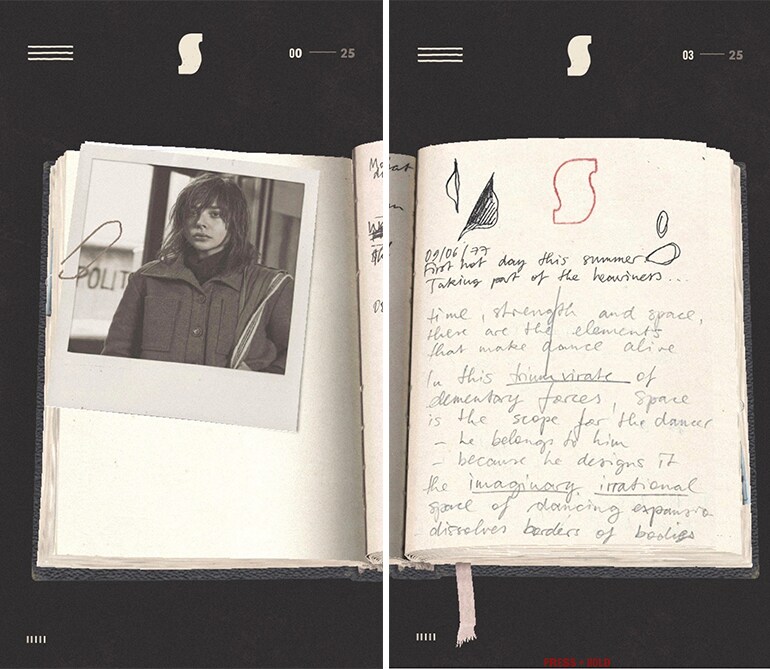 00 25
POLIT
S
03 25
S
09/06/77
First hot day this summer
Taking part of the heaviness...
time, strength and space,
these are the elements
that make dance alive
In this triumvirate of
elementary forces, space
is the scope for the dancer
- he belongs to him
- because he designs it
the imaginary irrational
space of dancing expansio
dissolves borders of bodies
PRESS + HOLD